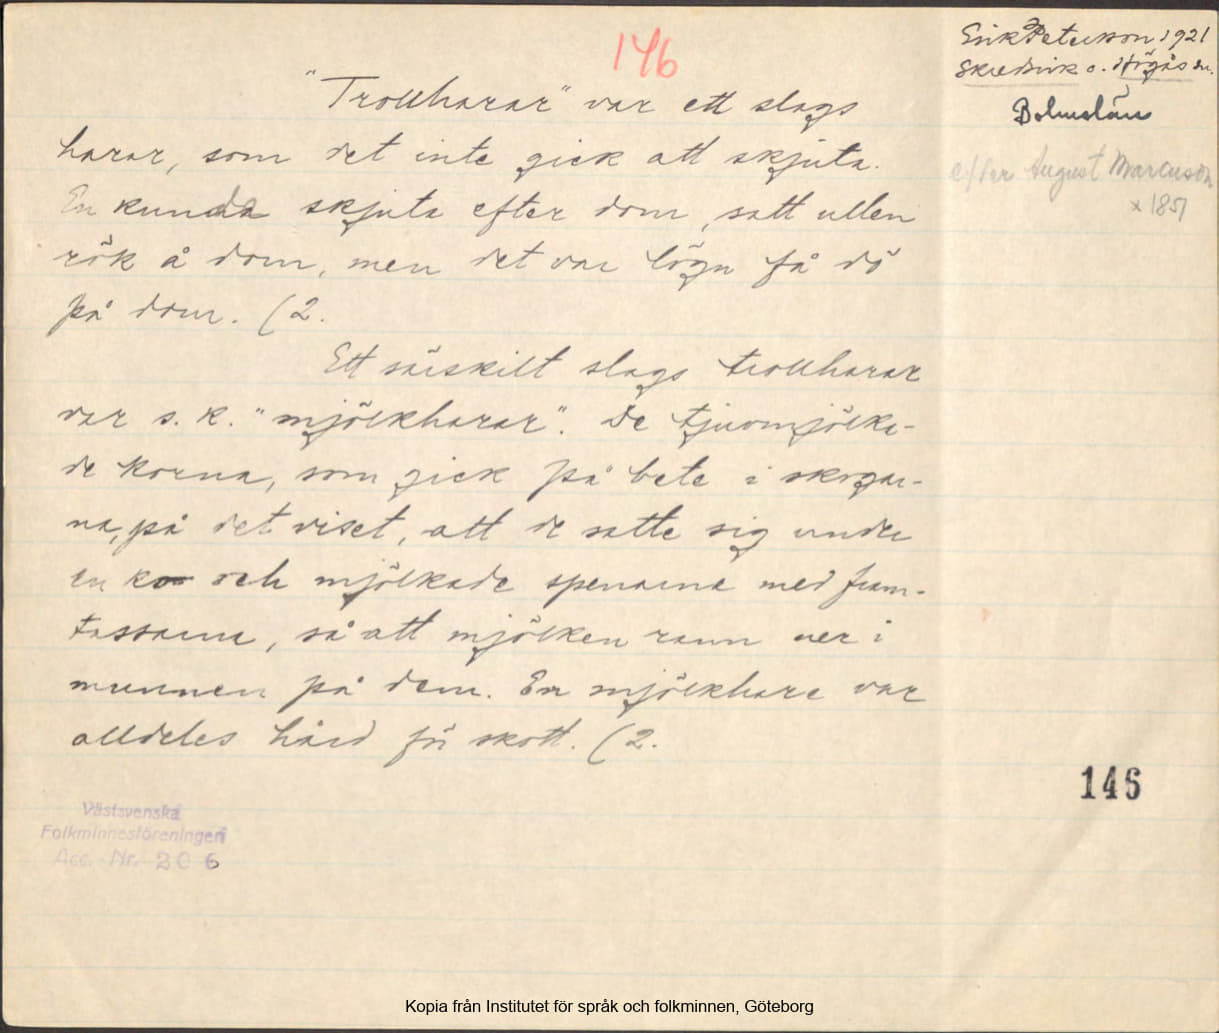 146
Erik Peterson 1921
Skredsvik o. Högås sn.
Bohuslän
efter August Marcuson
x 1851
"Trollharar" var ett slags
harar, som det inte gick att skjuta.
En kunda skjuta efter dom, satt ullen
rök å dom, men det var lögn få dö
på dom. (2.
Ett särskilt slags trollharar
var s.k. "mjölkharar". De tjuvmjölka-
de korna, som gick på bete i skogar-
na, på det viset, att de satte sig under
en ko och mjölkade spenarna med fram-
tassarna, så att mjölken rann ner i
munnen på dem. En mjölkhare var
alldeles hård för skott. (2.
146
Västsvenska
Folkminnesföreningen
Acc. Nr. 206
Kopia från Institutet för språk och folkminnen, Göteborg